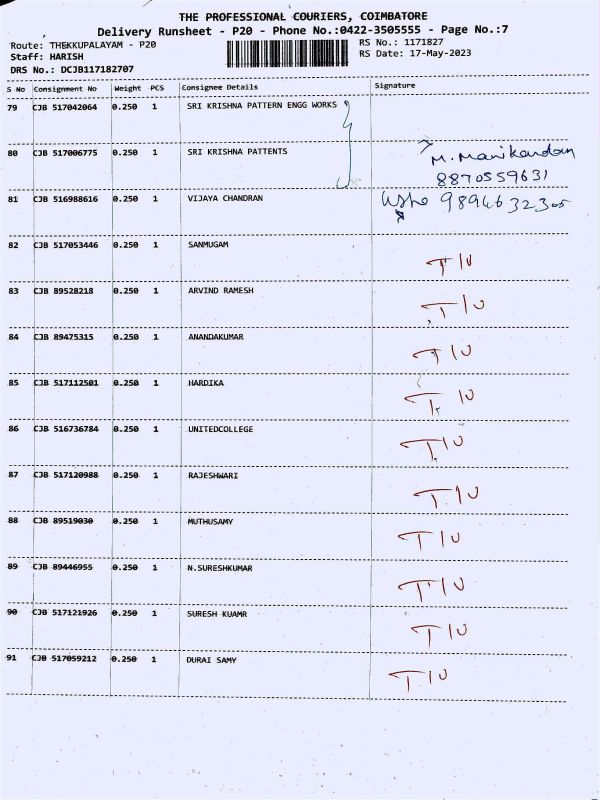 THE PROFESSIONAL COURIERS, COIMBATORE
Delivery Runsheet - P20 - Phone No.:0422-3505555 - Page No.:7
Route: THEKKUPALAYAM - P20 RS No.: 1171827
Staff: HARISH RS Date: 17-May-2023
DRS No.: DCJB117182707
S No Consignment No Weight PCS Consignee Details Signature
79 CJB 517042064 0.250 1 SRI KRISHNA PATTERN ENGG WORKS
80 CJB 517006775 0.250 1 SRI KRISHNA PATTENTS M. Manikandan
8870559631
81 CJB 516988616 0.250 1 VIJAYA CHANDRAN
82 CJB 517053446 0.250 1 SANMUGAM T/U
83 CJB 89528218 0.250 1 ARVIND RAMESH T/U
84 CJB 89475315 0.250 1 ANANDAKUMAR T/U
85 CJB 517112501 0.250 1 HARDIKA T/U
86 CJB 516736784 0.250 1 UNITEDCOLLEGE T/U
87 CJB 517120988 0.250 1 RAJESHWARI T/U
88 CJB 89519030 0.250 1 MUTHUSAMY T/U
89 CJB 89446955 0.250 1 N.SURESHKUMAR T/U
90 CJB 517121926 0.250 1 SURESH KUAMR T/U
91 CJB 517059212 0.250 1 DURAI SAMY T/U